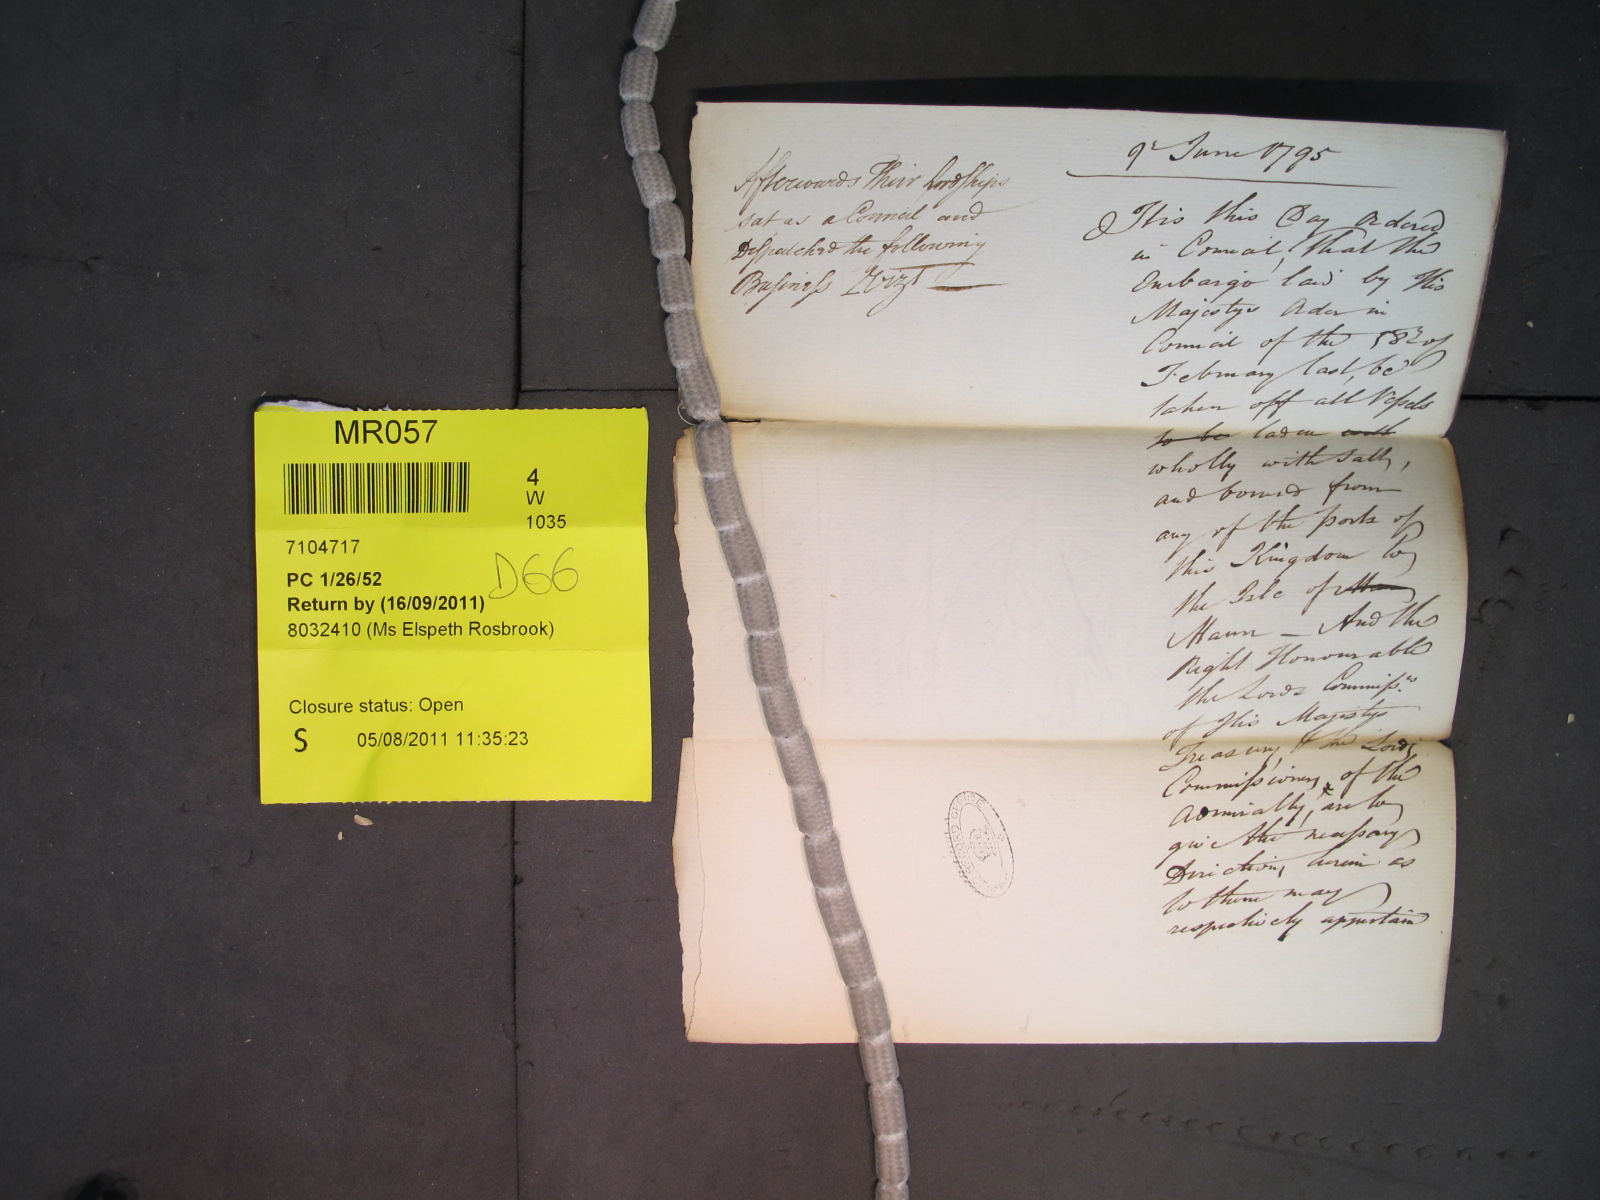 MR057
4
W
1035
7104717
PC 1/26/52
D66
Return by (16/09/2011)
8032410 (Ms Elspeth Rosbrook)
Closure status: Open
S
05/08/2011 11:35:23
Afterwards Their Lordships
sat as a Council and
Dispatched the following
Business Vizt
9th June 1795
It is this Day Ordered
in Council, that the
Embargo laid by His
Majestys Order in
Council of the 18th of
February last, be
taken off all Vessels
to be laden with
wholly with Salt,
and bound from
any of the ports of
this Kingdom to
the Isle of Man
Mann — And the
Right Honourable
the Lords Commissrs
of His Majestys
Treasury, & the Lords
Commissioners of the
Admiralty, are to
give the necessary
Directions herein as
to them may
respectively appertain
RECORD OFFICE